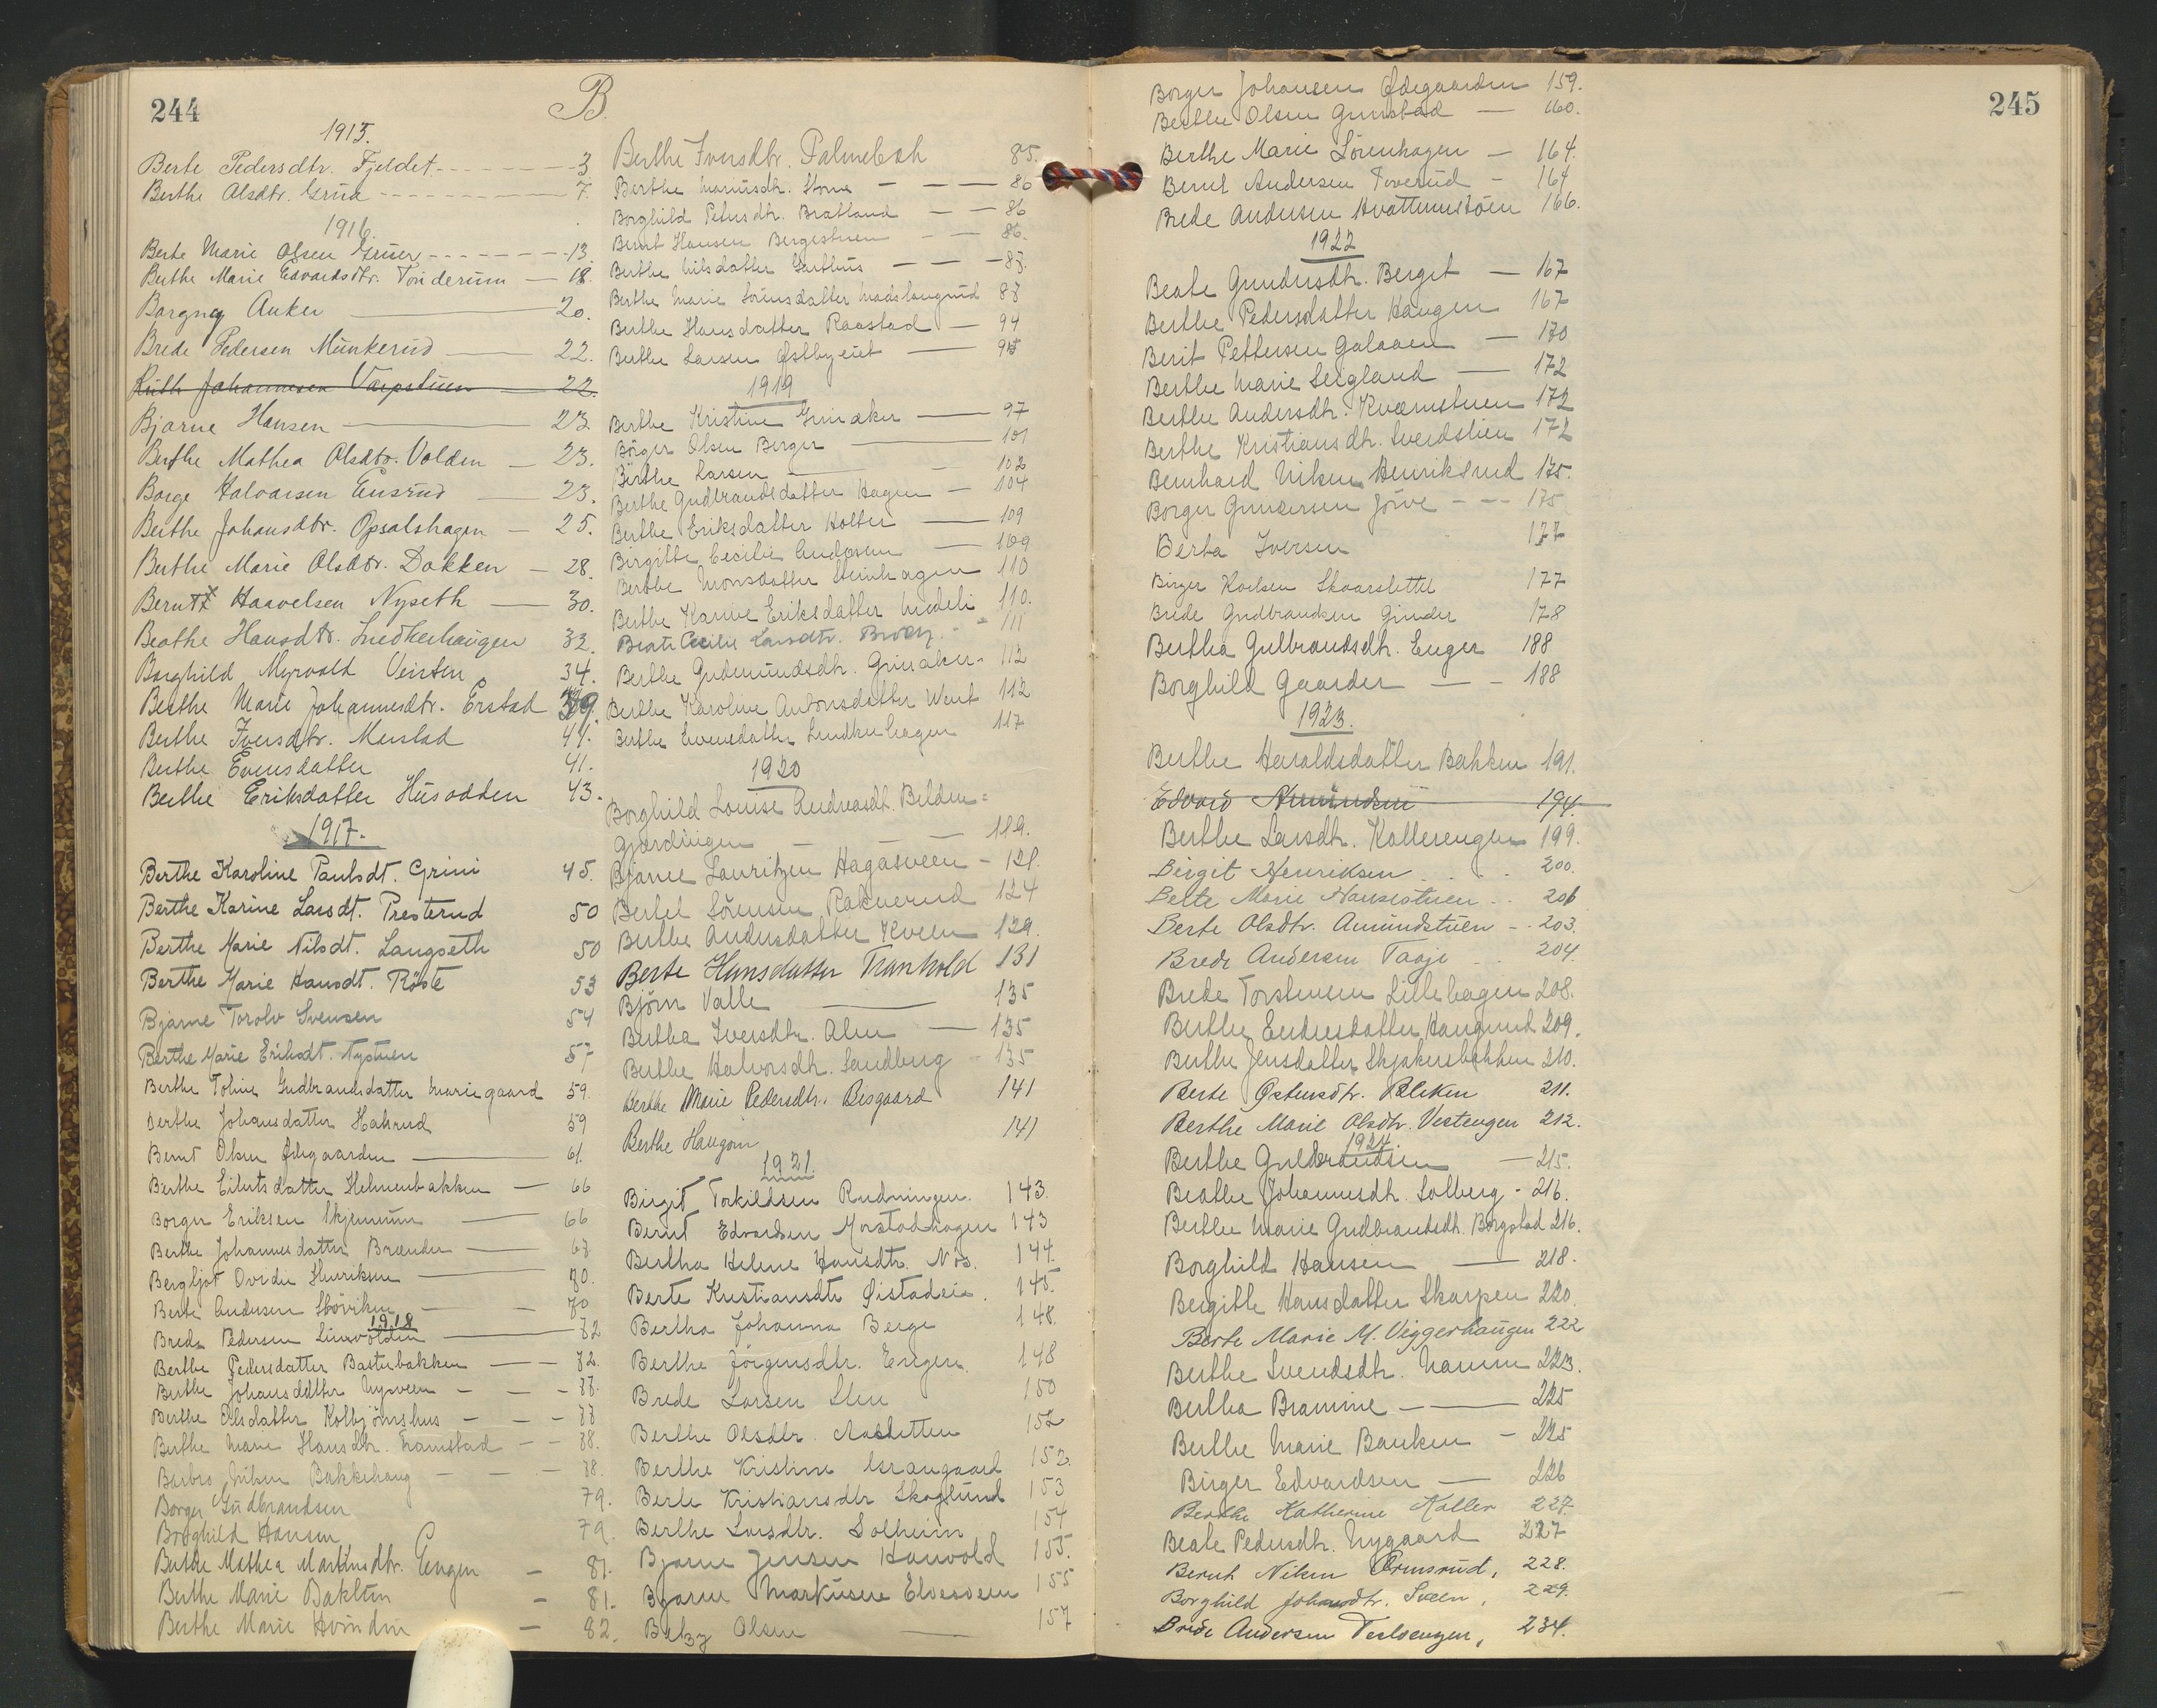 244
B
1915.
Berte Pedersdtr. Fjeldet 3.
Berthe Olsdtr. Grua 7.
1916.
Berte Marie Olsen Gruer 13.
Berthe Marie Edvardsdtr. Tonderum 18.
Borgny Anker 20.
Brede Pedersen Munkerud 22.
Ruth Johannesen Varpstuen 22.
Bjarne Hansen 23
Berthe Mathea Olsdtr. Volden 23.
Borge Halvorsen Ensrud 23.
Berthe Johansdtr. Opsalshagen 25.
Berthe Marie Olsdtr. Dokken 28.
Bernt Haavelsen Nyseth 30.
Beathe Hansdtr. Snedkerhaugen 32.
Borghild Myrvold Veisten 34.
Berthe Marie Johannesdtr. Erstad 39.
Berthe Iversdtr. Merstad 41.
Berthe Evensdatter 41.
Berthe Eriksdatter Husodden 43.
1917.
Berthe Karoline Paulsdt. Grini 45.
Berthe Karine Larsdt. Presterud 50
Berthe Marie Nilsdt. Langseth 50
Berthe Marie Hansdt. Röste 53
Bjarne Torolv Svensen 54
Berthe Marie Eriksdt. Nystuen 57
Berthe Toline Gudbrandsdatter Mariegaard 59.
Berthe Johansdatter Hakrud 59
Bernt Olsen Ødegaarden 61.
Berthe Eilertsdatter Helmenbakken 66
Borger Eriksen Skjennum 66
Berthe Johannesdatter Brænden 68
Bergljot Ovidie Henriksen 70.
Berte Andersen Sköviken 70
1918
Brede Pedersen Linsvolden 72
Berthe Pedersdatter Basterbakken 72.
Berthe Johansdatter Nysveen 77.
Berthe Olsdatter Kolbjörnshus 77
Berthe Marie Hansdtr. Framstad 78.
Barbro Nilsen Bakkehaug 78.
Borger Gudbrandsen 79.
Borghild Hansen 79.
Berthe Mathea Martinsdtr. Engen 81.
Berthe Marie Baklien 81.
Berthe Marie Hvinden 82.
Berthe Iversdtr. Palmebak 85.
Berthe Mariusdtr. Stone 86
Borghild Petersdtr. Bratland 86
Bernt Hansen Bergestuen 86.
Berthe Nilsdatter Garthus 87.
Berthe Marie Sörensdatter Madslangrud 87
Berthe Hansdatter Raastad 94
Berthe Larsen Østbyeiet 95
1919
Berthe Kristine Grinaker 97
Börger Olsen Berger 101
Berthe Larsen 102
Berthe Gudbrandsdatter Hagen 104
Berthe Eriksdatter Holter 109
Birgitte Cecilie Andersen 109
Berthe Monsdatter Steinhagen 110
Berthe Karine Eriksdatter Medeli 110.
Beate Cecilie Larsdtr. Brorby 111
Berthe Gudmundsdtr. Grinaker 112
Berthe Karoline Antonsdatter Went 112
Berthe Evensdatter Snedkerhagen 117
1920
Borghild Louise Andreasdt. Belden=
gjordingen 119.
Bjarne Lauritzen Hagasveen 121.
Bertel Sörensen Raknerud 124
Berthe Andersdatter Kveen 129.
Berte Hansdatter Tranhold 131
Björn Valle 135
Bertha Iversdtr. Alm 135
Berthe Halvorsdtr. Sandberg 135
Berthe Marie Pedersdtr. Besgaard 141
Berthe Haugom 141
1921.
Birgit Torkildsen Rudningen. 143.
Bernt Edvardsen Morstadhagen 143
Bertha Helene Hansdtr. Nös. 144.
Berte Kristiansdtr Øistadeie. 145.
Bertha Johanna Berge 148.
Berthe Jörgensdtr. Engen 148
Brede Larsen Slen 150
Berthe Olsdtr. Aasletten 152
Berthe Kristine Granggaard 152.
Berte Kristiansdtr Skoglund 153
Berthe Larsdtr. Solheim 154
Bjarne Jensen Hauvold 155.
Bjarne Markusen Elvesveen 155
Betzy Olsen 157
245
Borger Johansen Ødegaarden 159.
Berthe Olsen Grimstad 160.
Berthe Marie Sörenhagen 164.
Bernt Andersen Toverud 164
Brede Andersen Hvattumstöen 166.
1922
Beate Gundersdtr. Berget 167
Berthe Pedersdatter Haugen 167
Berit Pettersen Galaaen 170
Berthe Marie Leigland 172
Berthe Andersdtr. Kværnstuen 172
Berthe Kristiansdtr. Sverdslien 172
Bernhard Nilsen Henriksrud 175.
Borger Gundersen Jörve 175
Berta Iversen 177
Birger Karlsen Skaarslettet 177
Brede Gudbrandsen Ginder 178
Bertha Gulbrandsdtr. Enger 188
Borghild Gaarder 188
1923.
Berthe Haraldsdatter Bakken 191.
Edvard Amundsen 194.
Berthe Larsdtr. Kollerengen 199.
Birgit Henriksen 200.
Berte Marie Hansestuen 206
Berte Olsdtr. Amundstuen 203.
Brede Andersen Taaje 204.
Brede Torstensen Lillehagen 208.
Berthe Endresdatter Haugerud 209.
Berthe Jensdatter Skjakersbakken 210.
Berte Østensdtr. Bleken 211.
Berthe Marie Olsdtr. Vestengen 212.
1924.
Berthe Guldbrandsen 215.
Beathe Johannesdtr. Solberg 216.
Berthe Marie Gudbrandsdtr. Borgstad 216.
Borghild Hansen 218.
Bergitte Hansdatter Skarpen 220.
Berte Marie M. Viggerhaugen 222
Berthe Svendsdtr. Namm 223.
Bertha Bramine 225
Berthe Marie Banken 225
Birger Edvardsen 226
Berthe Katherine Koller 227.
Beate Pedersdtr. Nygaard 227
Bernt Nilsen Ormsrud, 228.
Borghild Johansdtr. Sveen, 229.
Brede Andersen Tesloengen, 234.